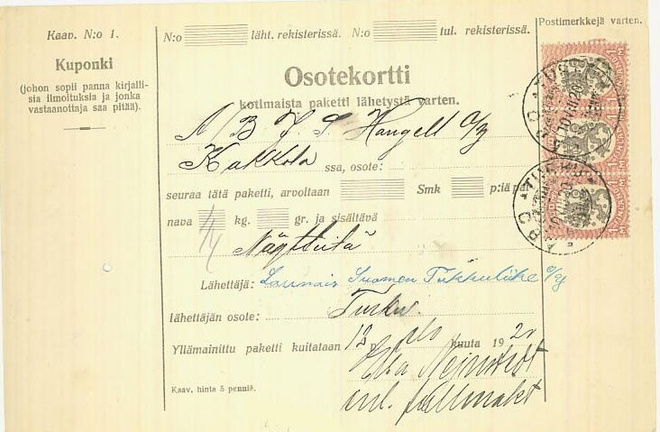 Kaav. N:o 1.
Kuponki
(johon sopii panna kirjalli-
sia ilmoituksia ja jonka
vastaanottaja saa pitää).
N:o läht. rekisterissä. N:o tul. rekisterissä.
Postimerkkejä varten.
Osotekortti
kotimaista paketti lähetystä varten.
A/B J. S. Hangelt o/y
Kokkola ssa, osote:
seuraa tätä paketti, arvoltaan Smk p:iä pai-
nava kg. gr. ja sisältävä
Näytteitä
Lähettäjä: Lounais Suomen Tukkuliike o/y
lähettäjän osote: Turku.
Yllämainittu paketti kuitataan 12 p. kuuta 192
Kaav. hinta 5 penniä.